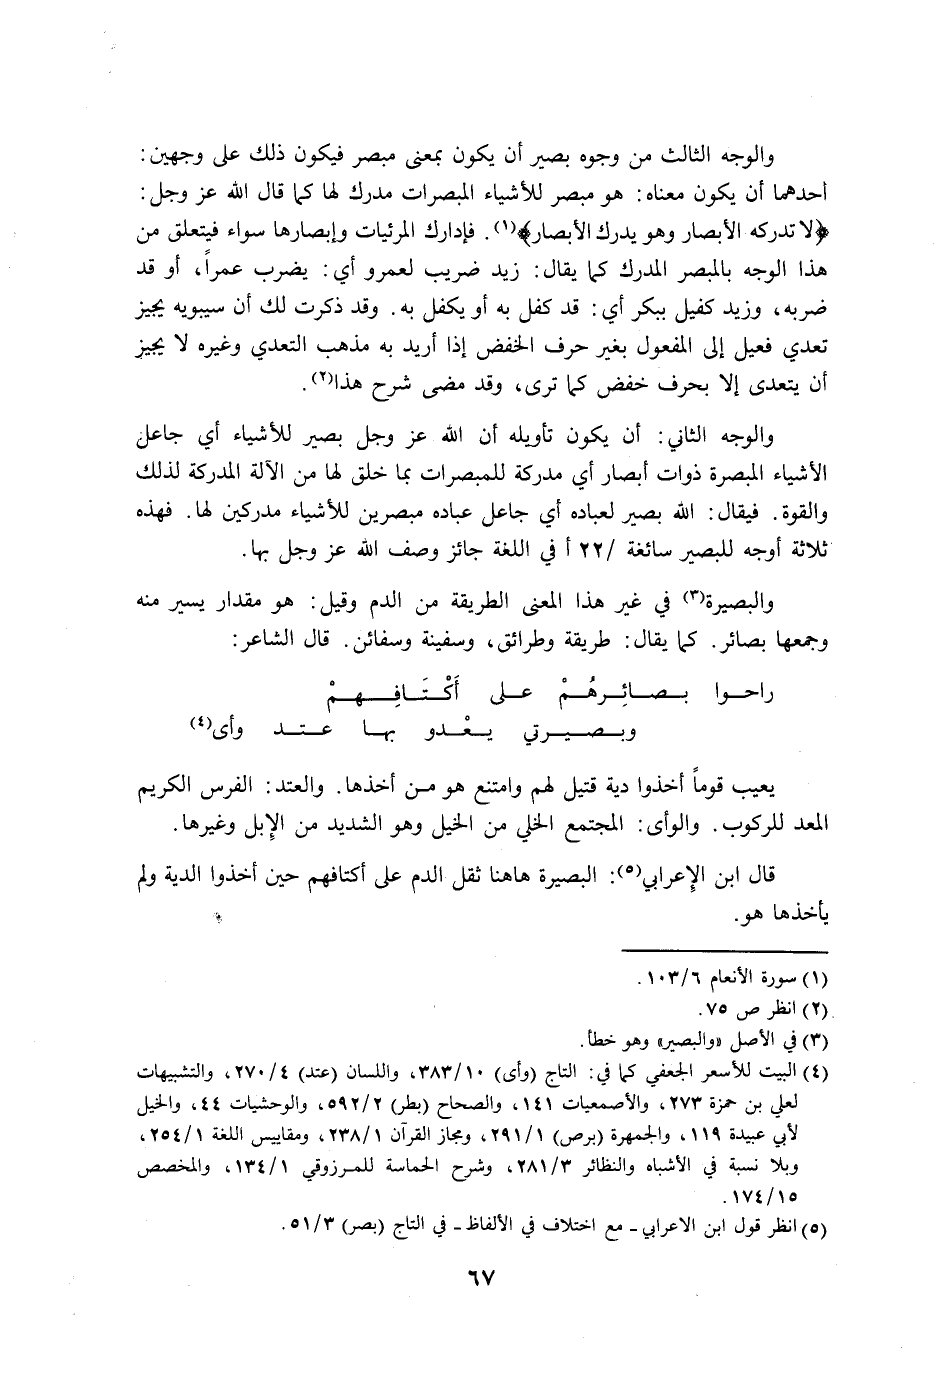 والوجه الثالث من وجوه بصير أن يكون بمعنى مبصر فيكون ذلك على وجهين:
أحدهما أن يكون معناه: هو مبصر للأشياء المبصرات مدرك لها كما قال الله عز وجل:
﴿لا تدركه الأبصار وهو يدرك الأبصار﴾(١). فإدارك المرئيات وإبصارها سواء فيتعلق من
هذا الوجه بالمبصر المدرك كما يقال: زيد ضريب لعمرو أي: يضرب عمراً، أو قد
ضربه، وزيد كفيل ببكر أي: قد كفل به أو يكفل به. وقد ذكرت لك أن سيبويه يجيز
تعدي فعيل إلى المفعول بغير حرف الخفض إذا أريد به مذهب التعدي وغيره لا يجيز
أن يتعدى إلا بحرف خفض كما ترى، وقد مضى شرح هذا(٢).
والوجه الثاني: أن يكون تأويله أن الله عز وجل بصير للأشياء أي جاعل
الأشياء المبصرة ذوات أبصار أي مدركة للمبصرات بما خلق لها من الآلة المدركة لذلك
والقوة. فيقال: الله بصير لعباده أي جاعل عباده مبصرين للأشياء مدركين لها. فهذه
ثلاثة أوجه للبصير سائغة /٢٢ أ في اللغة جائز وصف الله عز وجل بها.
والبصيرة(٣) في غير هذا المعنى الطريقة من الدم وقيل: هو مقدار يسير منه
وجمعها بصائر. كما يقال: طريقة وطرائق، وسفينة وسفائن. قال الشاعر:
راحوا بصائِرهُمْ على أَكْتَافِهِمْ
وبصيرتي يعْدو بها عتد وأى(٤)
يعيب قوماً أخذوا دية قتيل لهم وامتنع هو من أخذها. والعتد: الفرس الكريم
المعد للركوب. والوأى: المجتمع الخلي من الخيل وهو الشديد من الإبل وغيرها.
قال ابن الإعرابي(٥): البصيرة هاهنا ثقل الدم على أكتافهم حين أخذوا الدية ولم
يأخذها هو.
(١) سورة الأنعام ١٠٣/٦.
(٢) انظر ص ٧٥.
(٣) في الأصل «والبصير» وهو خطأ.
(٤) البيت للأسعر الجعفي كما في: التاج (وأى) ٣٨٣/١٠، واللسان (عتد) ٢٧٠/٤، والتشبيهات
لعلي بن حمزة ٢٧٣، والأصمعيات ١٤١، والصحاح (بطر) ٥٩٢/٢، والوحشيات ٤٤، والخيل
لأبي عبيدة ١١٩، والجمهرة (برص) ٢٩١/١، ومجاز القرآن ٢٣٨/١، ومقاييس اللغة ٢٥٤/١،
وبلا نسبة في الأشباه والنظائر ٢٨١/٣، وشرح الحماسة للمرزوقي ١٣٤/١، والمخصص
١٧٤/١٥.
(٥) انظر قول ابن الاعرابي ـ مع اختلاف في الألفاظ ـ في التاج (بصر) ٥١/٣.
٦٧